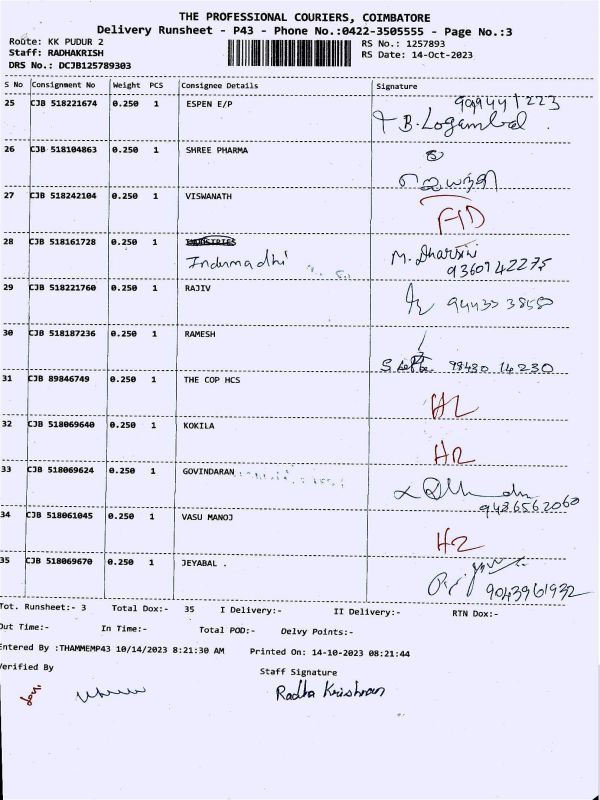 THE PROFESSIONAL COURIERS, COIMBATORE
Delivery Runsheet - P43 - Phone No.:0422-3505555 - Page No.:3
Route: KK PUDUR 2
RS No.: 1257893
Staff: RADHAKRISH
RS Date: 14-Oct-2023
DRS No.: DCJB125789303
S No Consignment No Weight PCS Consignee Details Signature
25 CJB 518221674 0.250 1 ESPEN E/P
B. Logambal
26 CJB 518104863 0.250 1 SHREE PHARMA
27 CJB 518242104 0.250 1 VISWANATH
28 CJB 518161728 0.250 1 INDUSTRIES
Indumadhi M. Dharsini
9360742275
29 CJB 518221760 0.250 1 RAJIV
94430 38550
30 CJB 518187236 0.250 1 RAMESH
98430 14230
31 CJB 89846749 0.250 1 THE COP HCS
32 CJB 518069640 0.250 1 KOKILA
33 CJB 518069624 0.250 1 GOVINDARAN
9486562060
34 CJB 518061045 0.250 1 VASU MANOJ
35 CJB 518069670 0.250 1 JEYABAL .
9043961932
Tot. Runsheet:- 3 Total Dox:- 35 I Delivery:- II Delivery:- RTN Dox:-
Out Time:- In Time:- Total POD:- Delvy Points:-
Entered By :THAMMEMP43 10/14/2023 8:21:30 AM Printed On: 14-10-2023 08:21:44
Verified By Staff Signature
Radha Krishnan